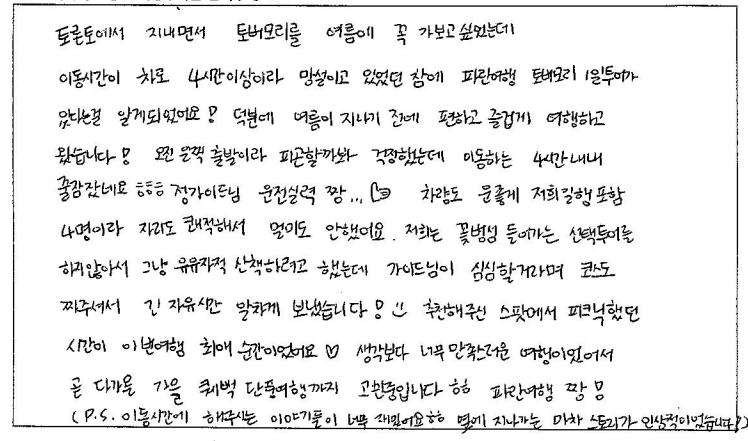 토론토에서 지내면서 토버모리를 여름에 꼭 가보고싶었는데
이동시간이 차로 4시간이상이라 망설이고 있었던 참에 파란여행 토버모리 1일투어가
있다는걸 알게되었어요! 덕분에 여름이 지나기 전에 편하고 즐겁게 여행하고
왔습니다! 오전 일찍 출발이라 피곤할까봐 걱정했는데 이동하는 4시간내내
꿀잠잤네요 ㅎㅎㅎ 정가이드님 운전실력 짱... 차량도 운좋게 저희일행 포함
4명이라 자리도 쾌적해서 멀미도 안했어요. 저희는 꽃병섬 들어가는 선택투어를
하지않아서 그냥 유유자적 산책하려고 했는데 가이드님이 심심할거라며 코스도
짜주셔서 긴 자유시간 알차게 보냈습니다! 추천해주신 스팟에서 피크닉했던
시간이 이번여행 최애 순간이었어요 ♡ 생각보다 너무 만족스러운 여행이었어서
곧 다가올 가을 퀘벡 단풍여행까지 고민중입니다 ㅎㅎ 파란여행 짱!
(P.S. 이동시간에 해주시는 이야기들이 너무 재밌어요ㅎㅎ 옆에 지나가는 마차 스토리가 인상적이었습니다!)